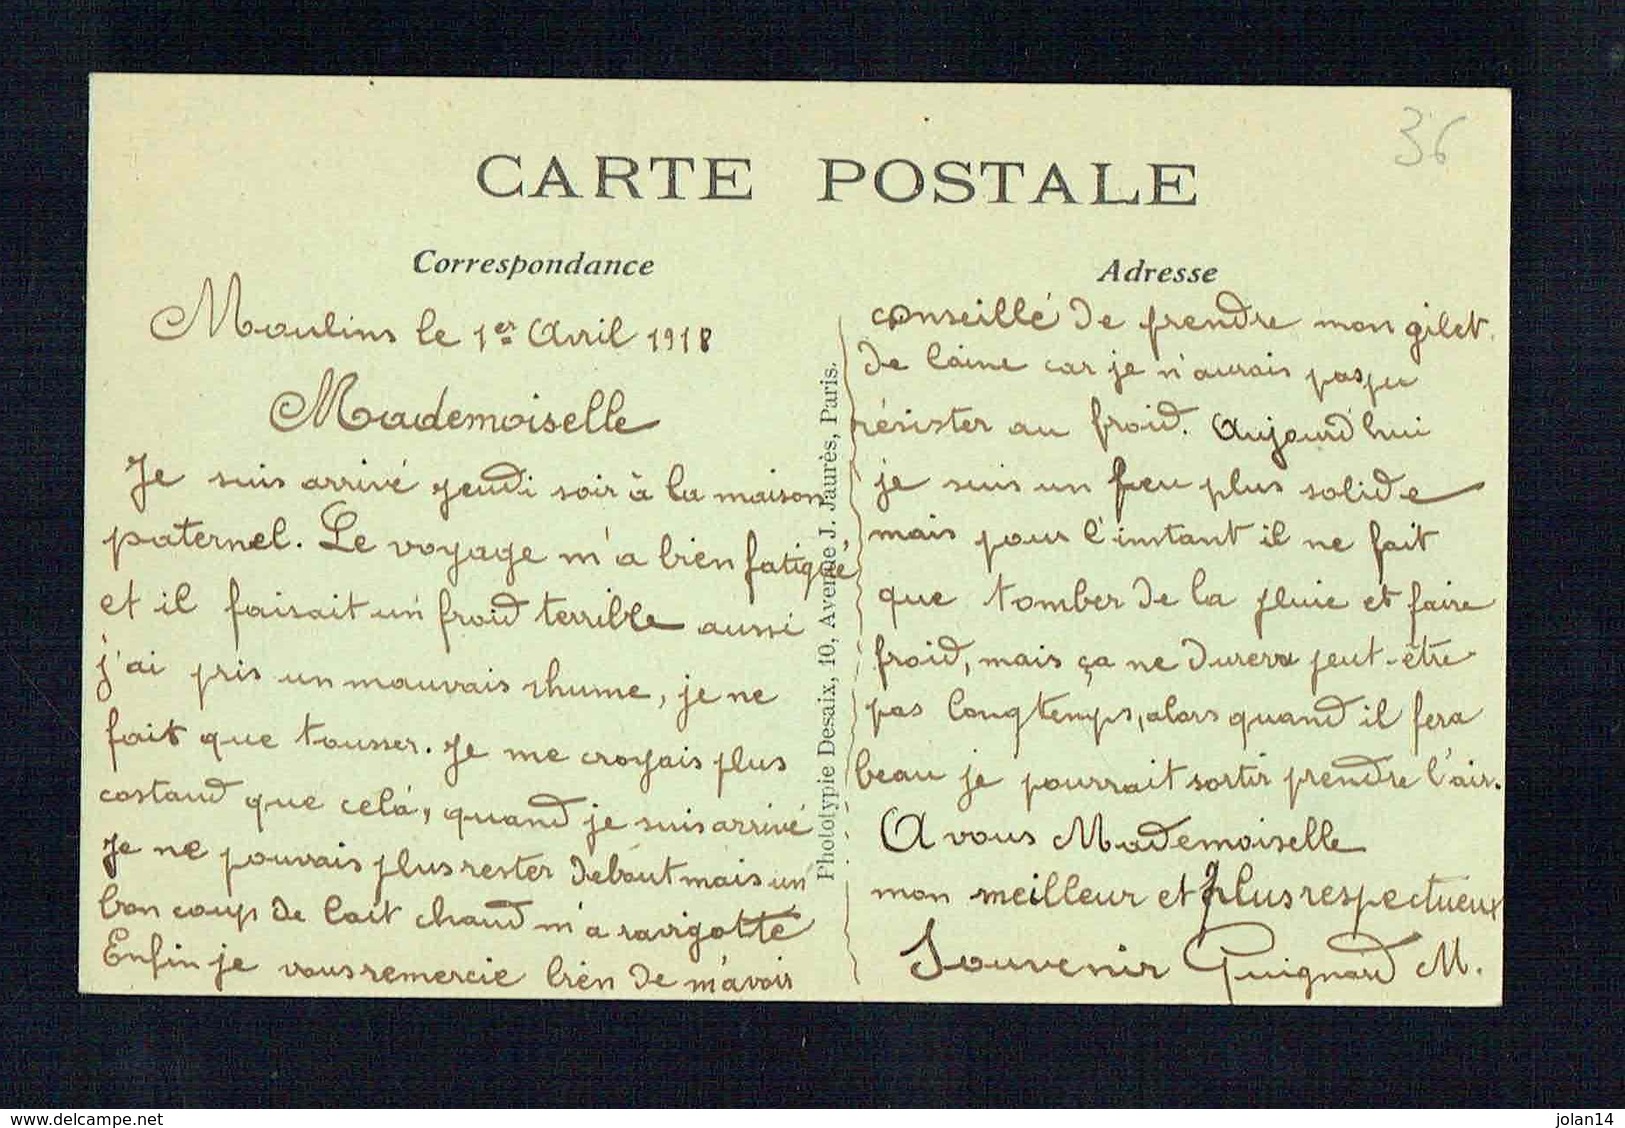 36
CARTE POSTALE
Correspondance
Moulins le 1er Avril 1918
Mademoiselle
Je suis arrivé jeudi soir à la maison
paternel. Le voyage m'a bien fatigué,
et il faisait un froid terrible aussi
j'ai pris un mauvais rhume, je ne
fait que tousser. Je me croyais plus
costaud que celà, quand je suis arrivé
Je ne pouvais plus rester debout mais un
bon coup de lait chaud m'a ravigotté
Enfin je vous remercie bien de m'avoir
Phototypie Desaix, 10, Avenue J. Jaurès, Paris.
Adresse
conseillé de prendre mon gilet
de laine car je n'aurais pas pu
résister au froid. Aujourd'hui
je suis un peu plus solide
mais pour l'instant il ne fait
que tomber de la pluie et faire
froid, mais ça ne durera peut-être
pas longtemps, alors quand il fera
beau je pourrait sortir prendre l'air.
A vous Mademoiselle
mon meilleur et plus respectueux
Souvenir Guignard M.
www.delcampe.net
jolan14